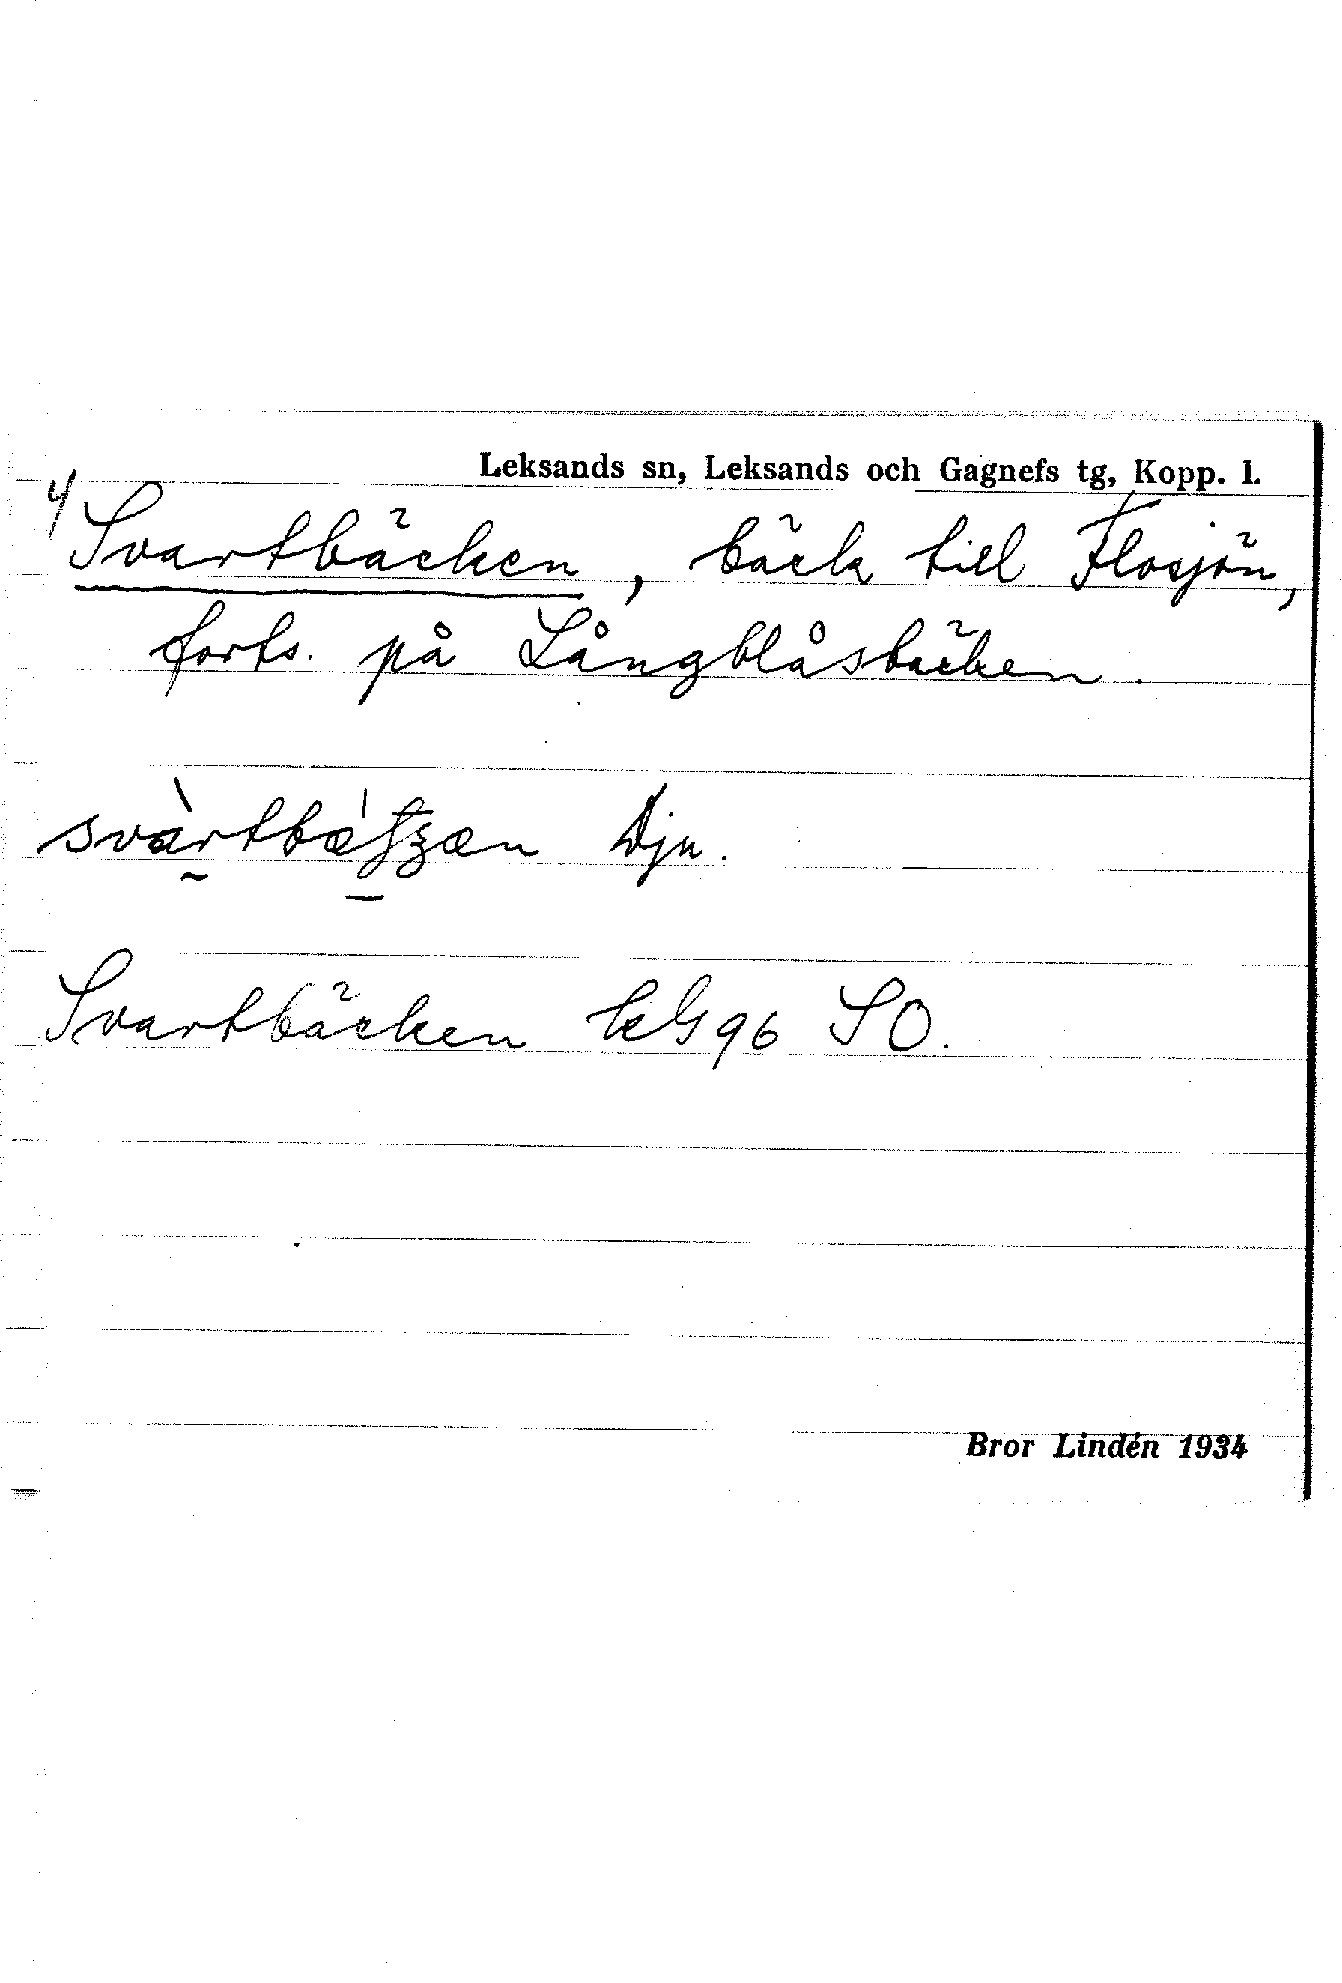 Leksands sn, Leksands och Gagnefs tg, Kopp. l.
4 Svartbäcken, bäck till Flosjön,
forts. på Långblåsbäcken.
Dju.
Svartbäcken kG 96 SO.
Bror Lindén 1934